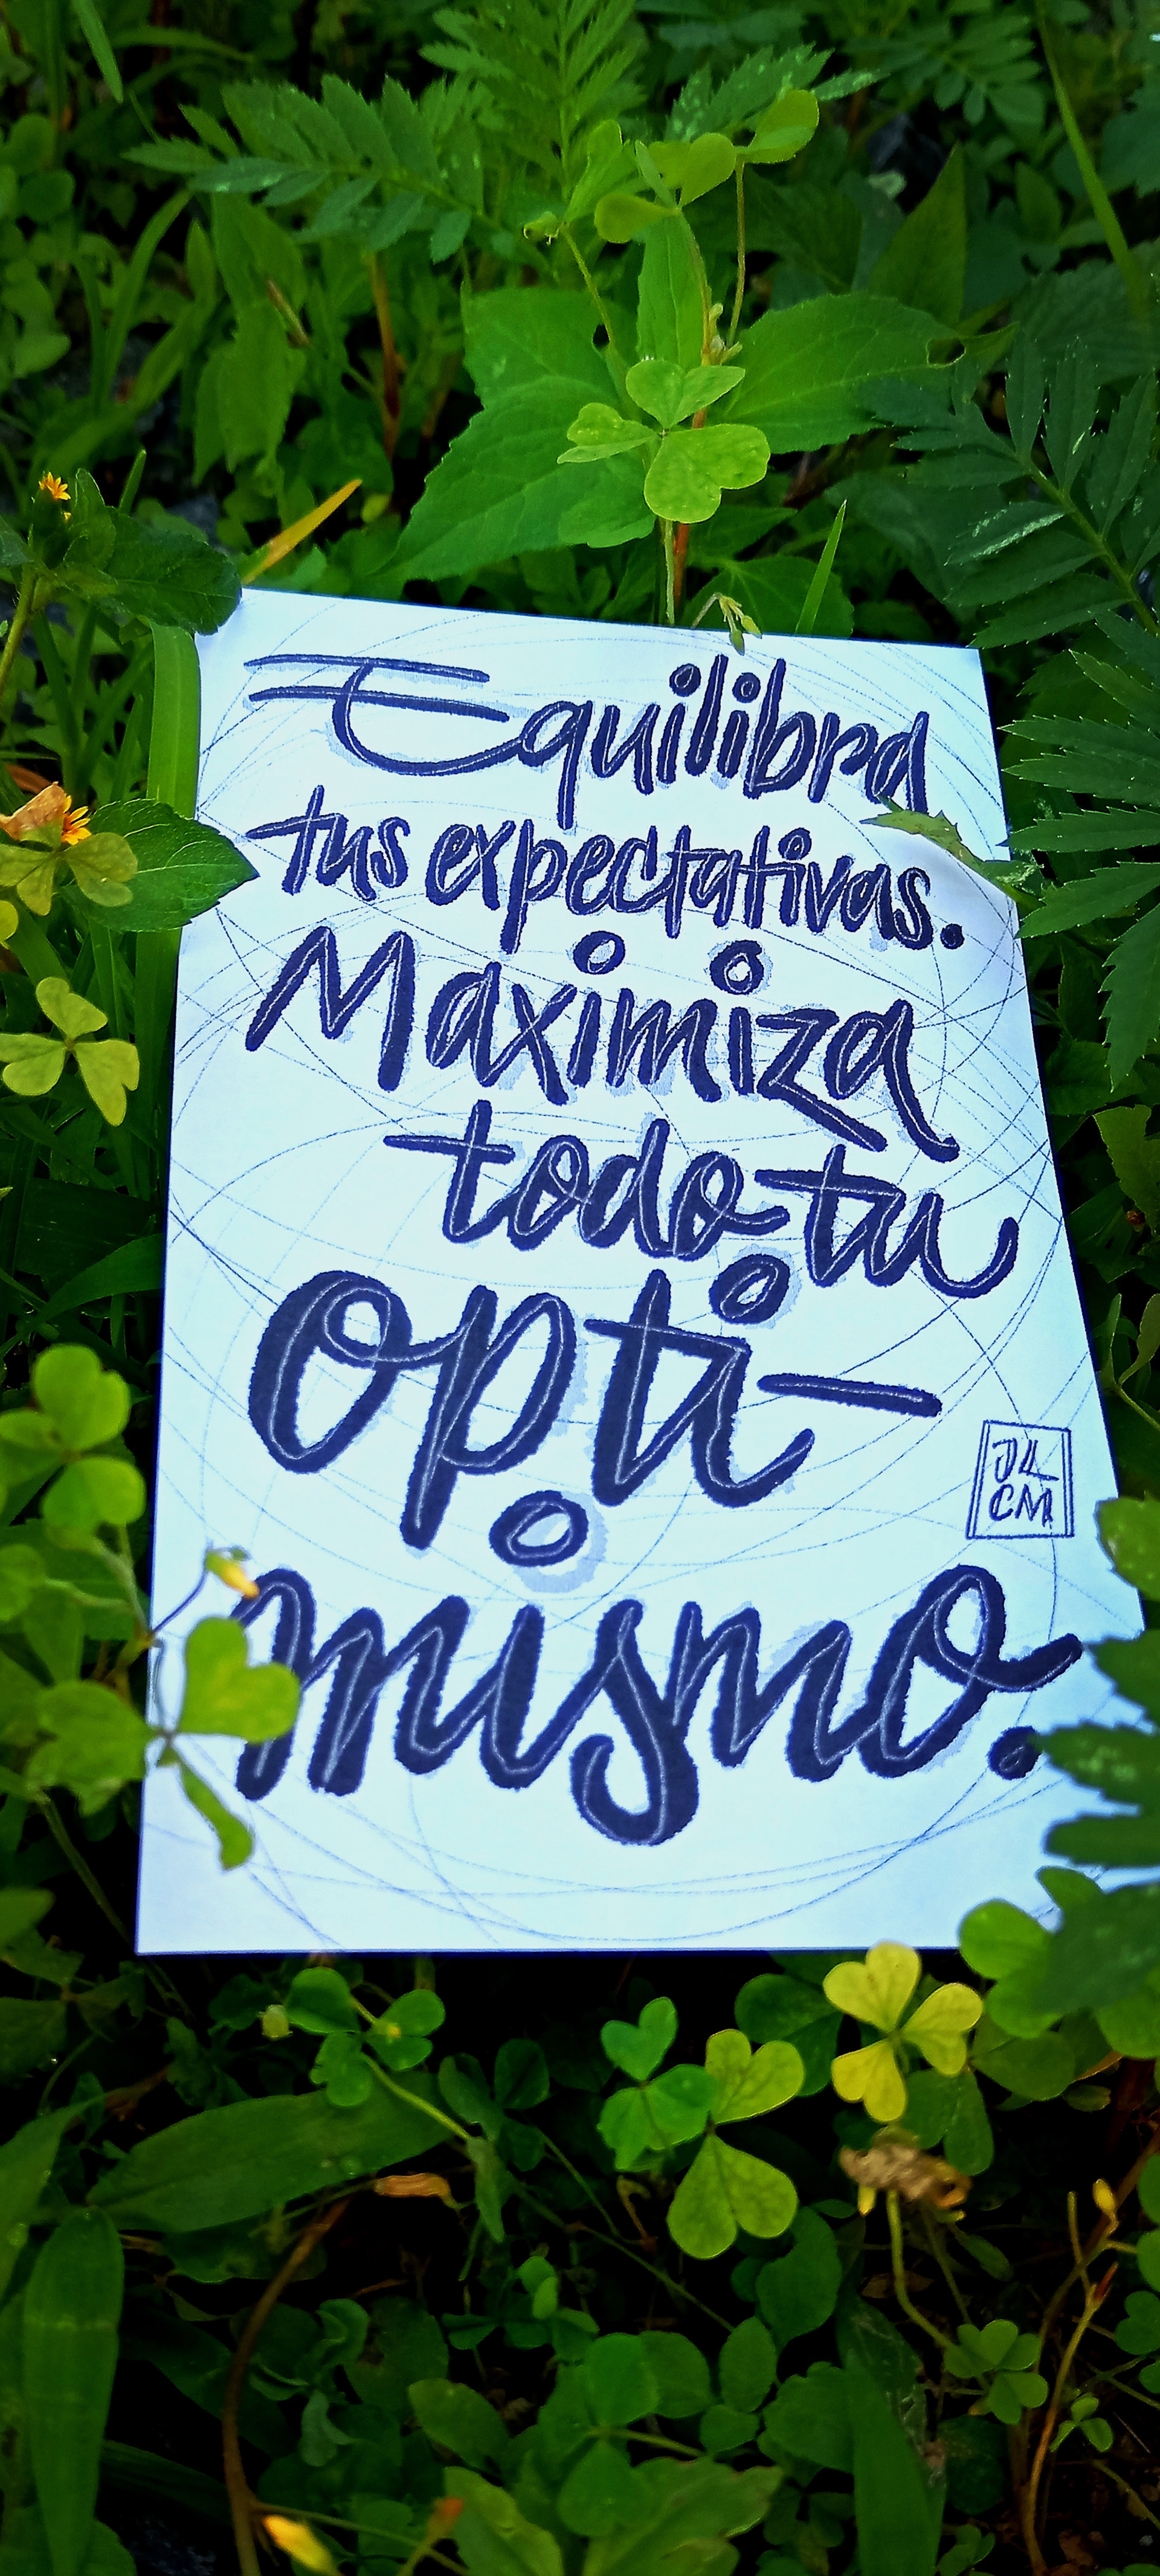 Equilibra
tus expectativas.
Maximiza
todo tu
opti-
mismo.
JL
CM